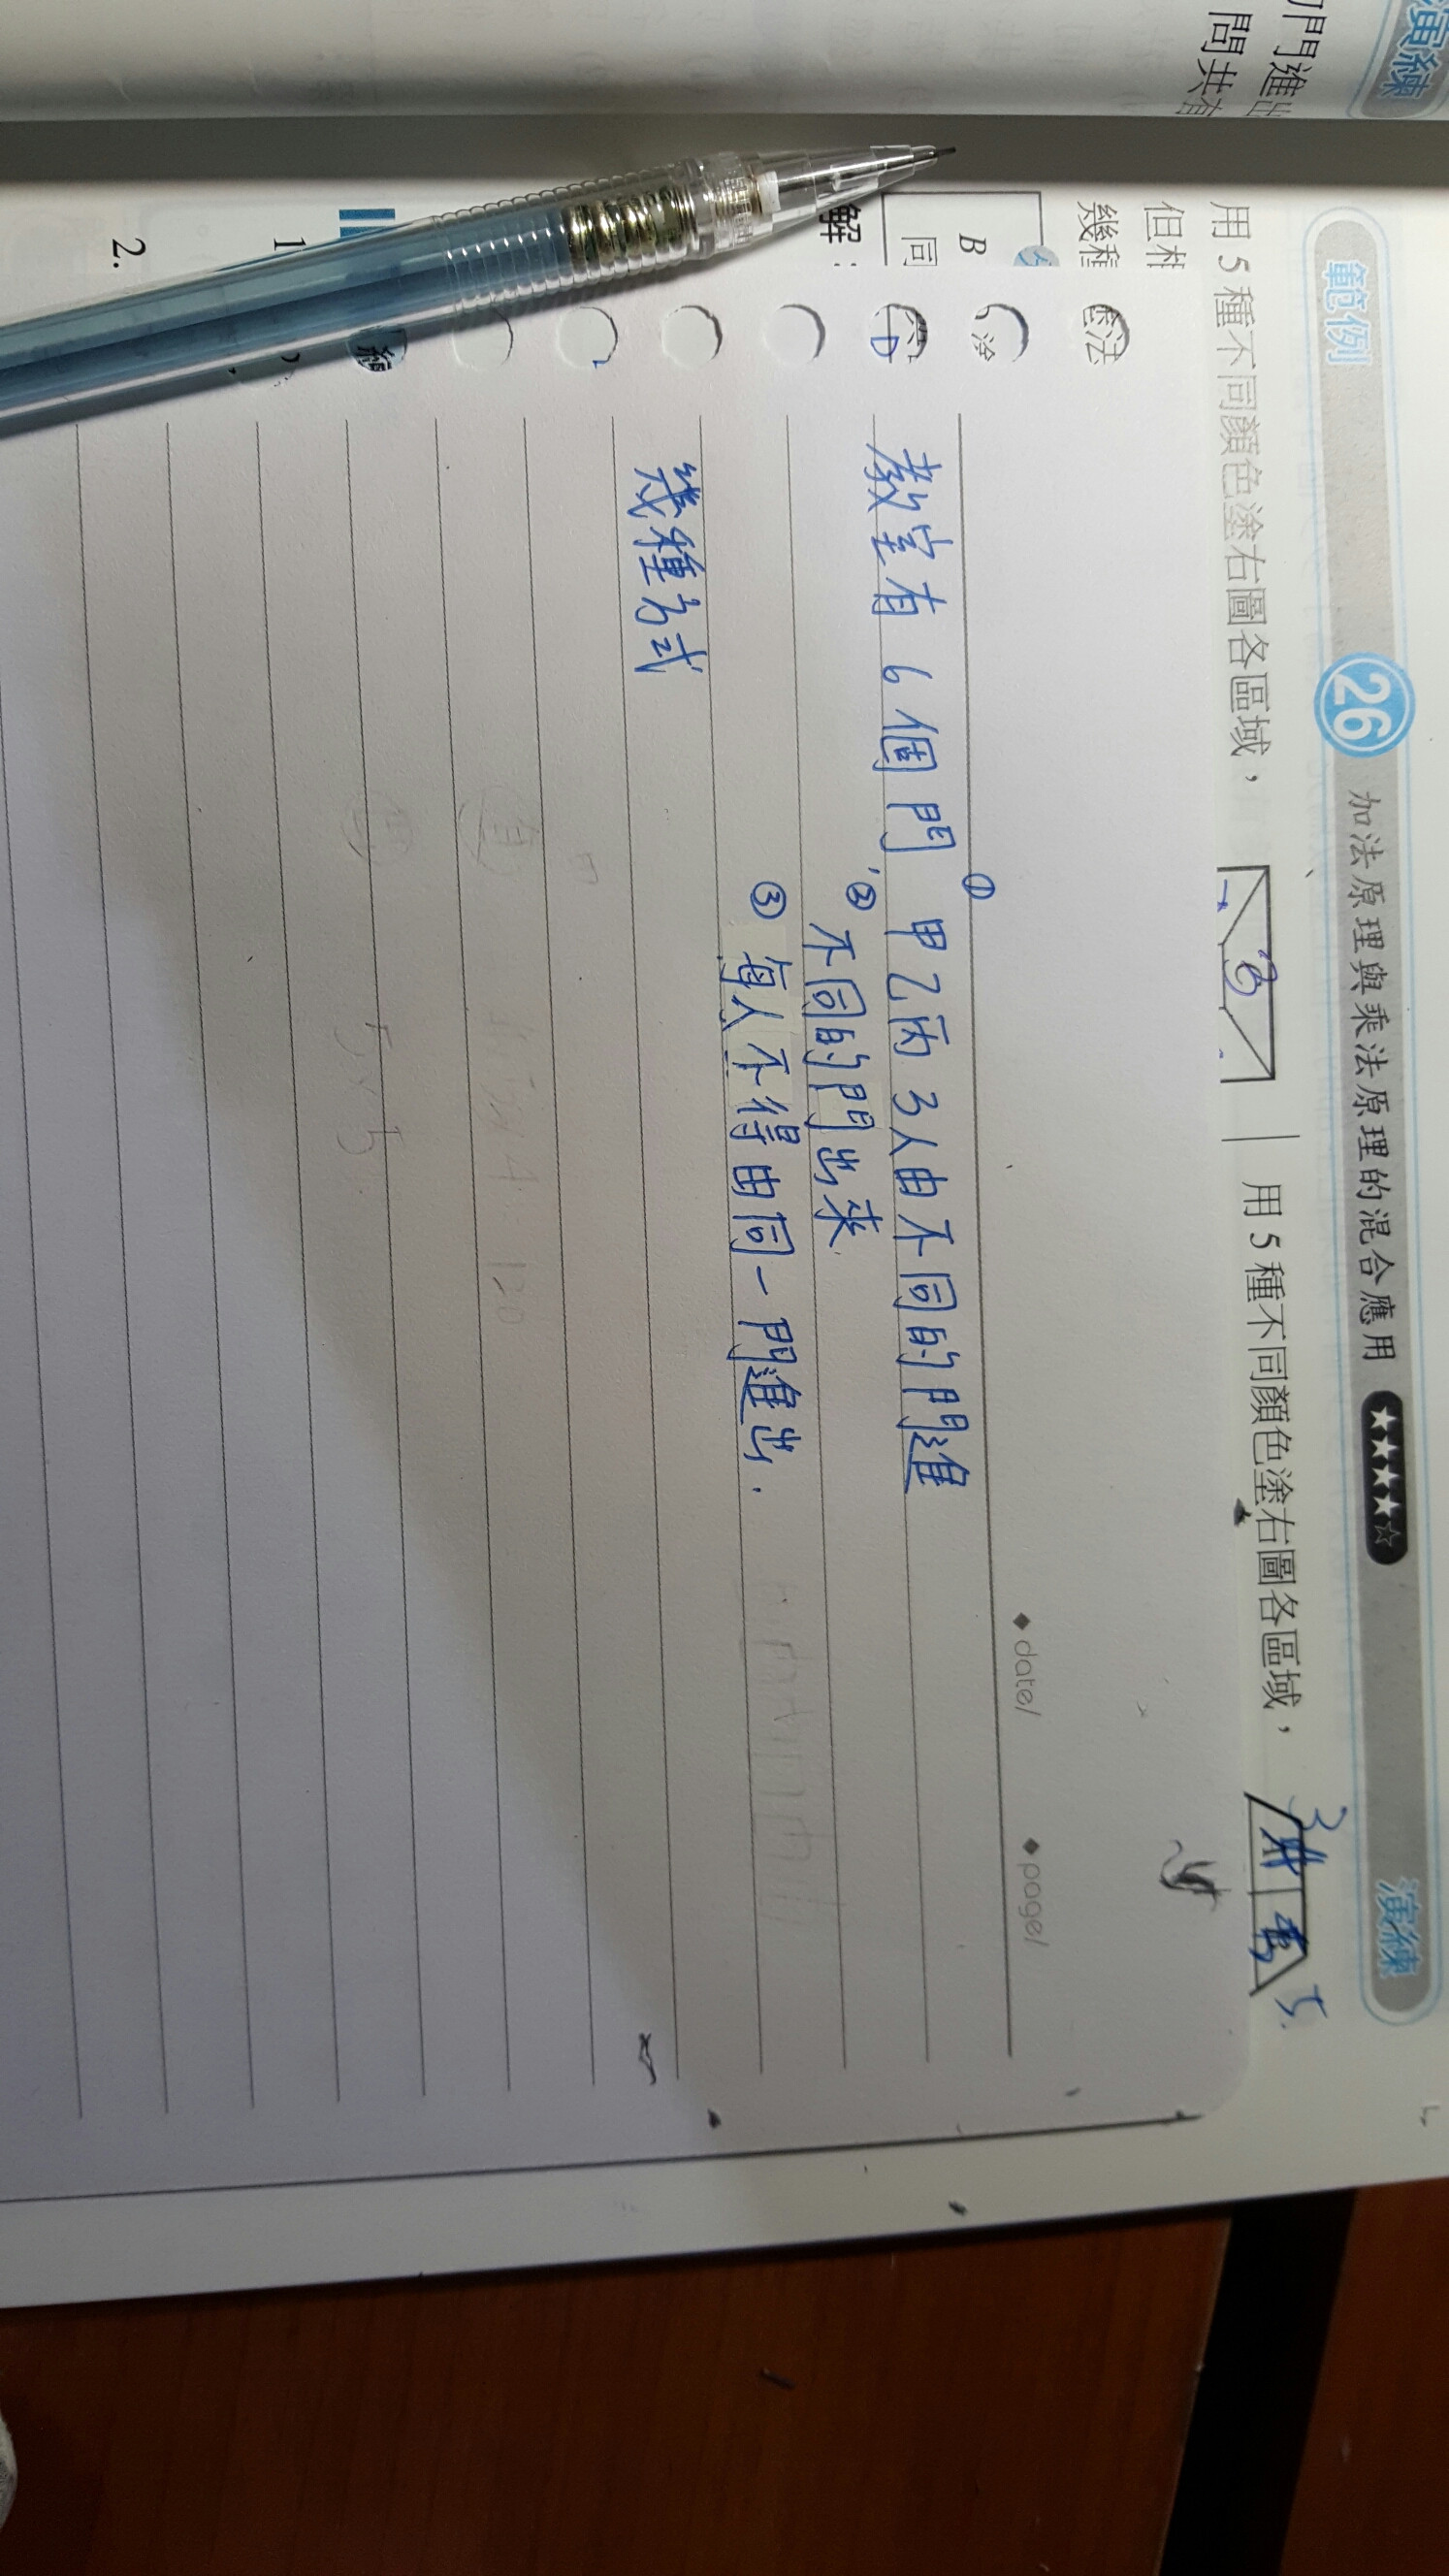 演練
門進出
問共有
範例
26 加法原理與乘法原理的混合應用 ★★★★☆
演練
用 5 種不同顏色塗右圖各區域，
用 5 種不同顏色塗右圖各區域，
但相
幾種
塗法
B
同
D
解：
◆ date/
◆ page/
教室有 6 個門，① 甲乙丙 3 人由不同的門進
② 不同的門出來.
③ 每人不得由同一門進出.
幾種方式
1.
2.